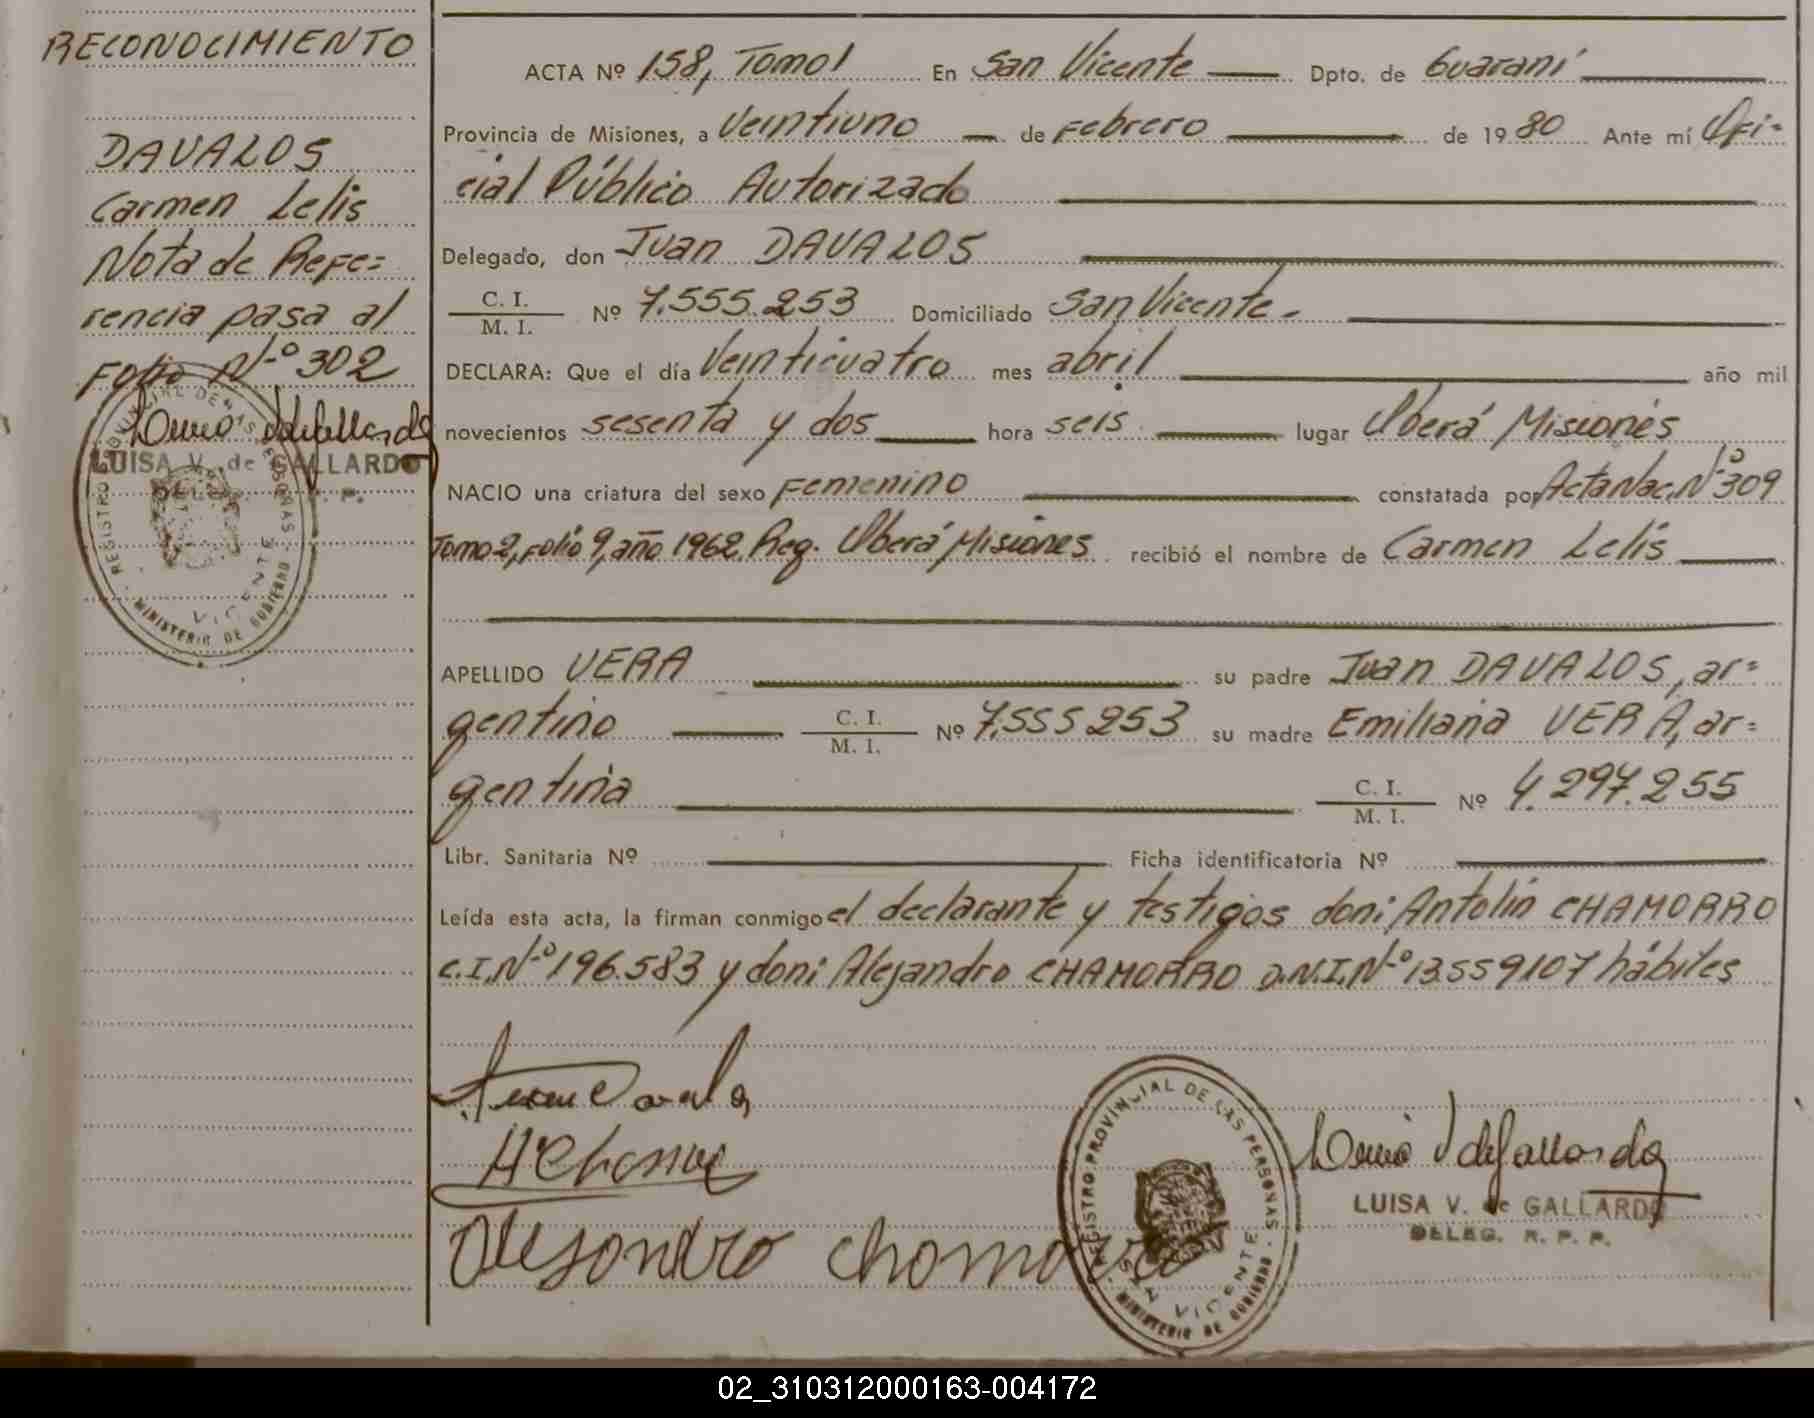 RECONOCIMIENTO
DAVALOS
Carmen Lelis
Nota de Refe=
rencia pasa al
Folio Nº 302
LUISA V. de GALLARDO
REGISTRO PROVINCIAL DE LAS PERSONAS
VICENTE
MINISTERIO DE GOBIERNO
ACTA Nº 158, Tomo 1 En San Vicente Dpto. de Guaraní
Provincia de Misiones, a Veintiuno de Febrero de 1980 Ante mí Ofi=
cial Público Autorizado
Delegado, don Juan DAVALOS
C. I. / M. I. Nº 7.555.253 Domiciliado San Vicente.
DECLARA: Que el día Veinticuatro mes abril año mil
novecientos sesenta y dos hora seis. lugar Oberá Misiones
NACIO una criatura del sexo Femenino constatada por Acta Nac. Nº 309
Tomo 2, Folio 9, año 1962, Reg. Oberá Misiones recibió el nombre de Carmen Lelis
APELLIDO VERA su padre Juan DAVALOS, ar=
gentino C. I. / M. I. Nº 7.555253 su madre Emiliana VERA, ar=
gentina C. I. / M. I. Nº 4.297.255
Libr. Sanitaria Nº Ficha identificatoria Nº
Leída esta acta, la firman conmigo el declarante y testigos don: Antolín CHAMORRO
C.I. Nº 196.583 y don: Alejandro CHAMORRO D.N.I. Nº 13.559107 hábiles
Alejandro Chamorro
REGISTRO PROVINCIAL DE LAS PERSONAS
SAN VICENTE
MINISTERIO DE GOBIERNO
LUISA V. de GALLARDO
DELEG. R. P. P.
02_310312000163-004172